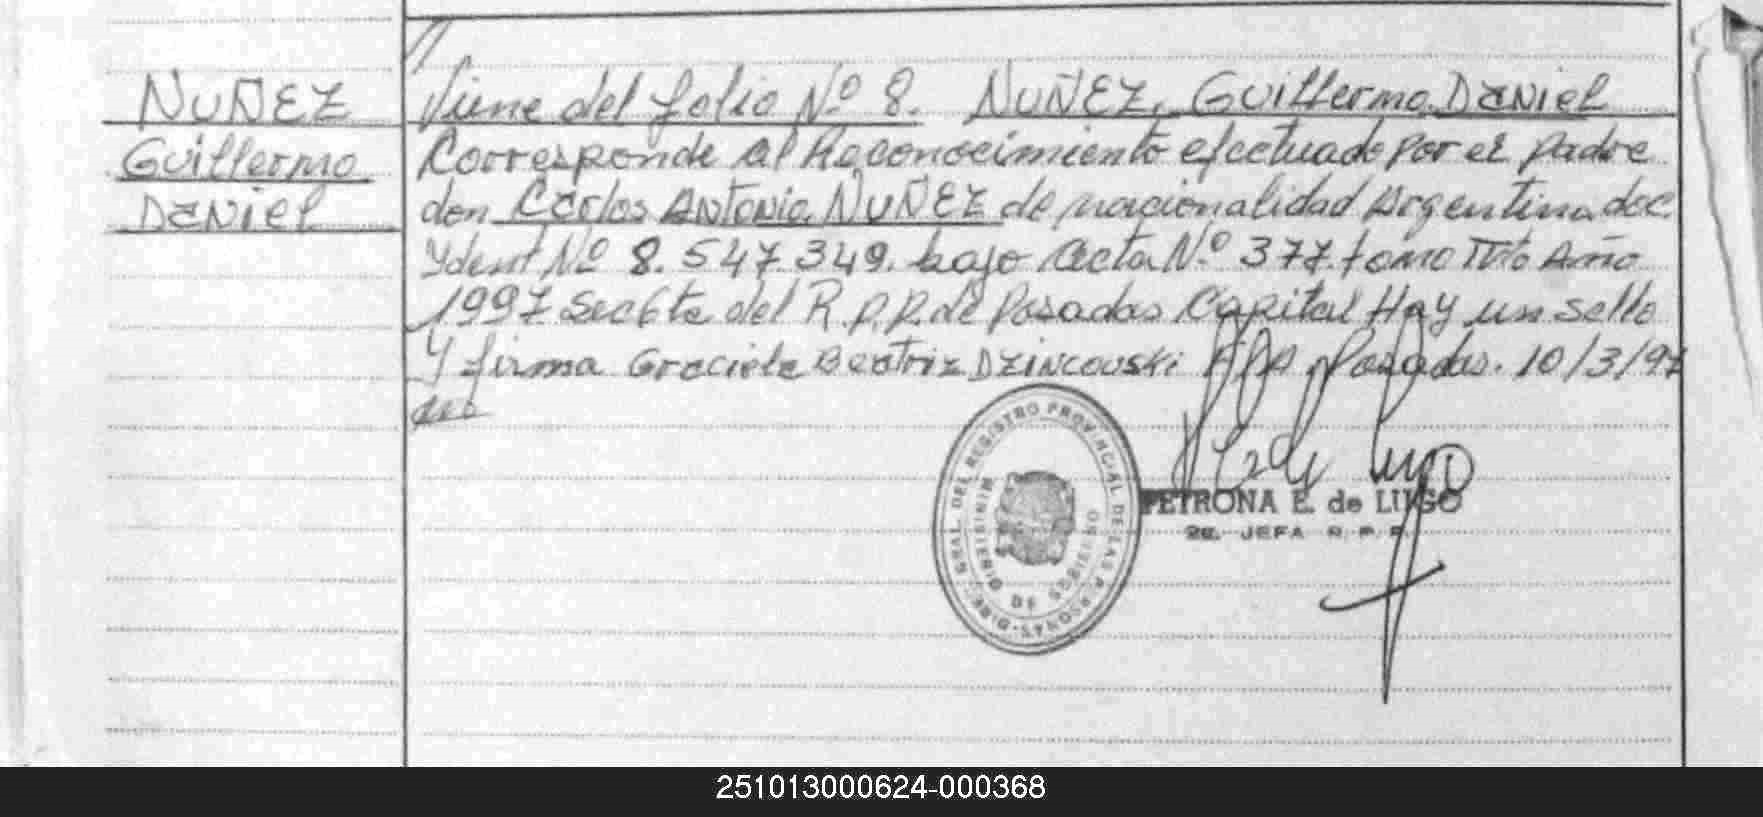 NUÑEZ
Guillermo
DANIEL
Viene del folio Nº 8. NUÑEZ, Guillermo DANiel
Corresponde al Reconocimiento efectuado por el padre
don Carlos ANTONio NUÑEZ de nacionalidad Argentina doc
Ydent Nº 8.547.349. bajo Acta Nº 377. tomo IVto Año
1997 Sec 6ta del R.P.P. de Posadas Capital Hay un sello
Y firma Graciela Beatriz DZINCOVSKi Posadas. 10/3/97
DIREC. GRAL. DEL REGISTRO PROVINCIAL DE LAS PERSONAS
MINISTERIO DE GOBIERNO
PETRONA E. de LUGO
2a. JEFA R. P. P.
251013000624-000368